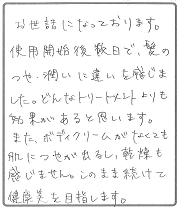 お世話になっております。
使用開始後数日で、髪の
つや・潤いに違いを感じま
した。どんなトリートメントよりも
効果があると思います。
また、ボディクリームがなくても
肌につやが出るし、乾燥も
感じません。このまま続けて
健康美を目指します。